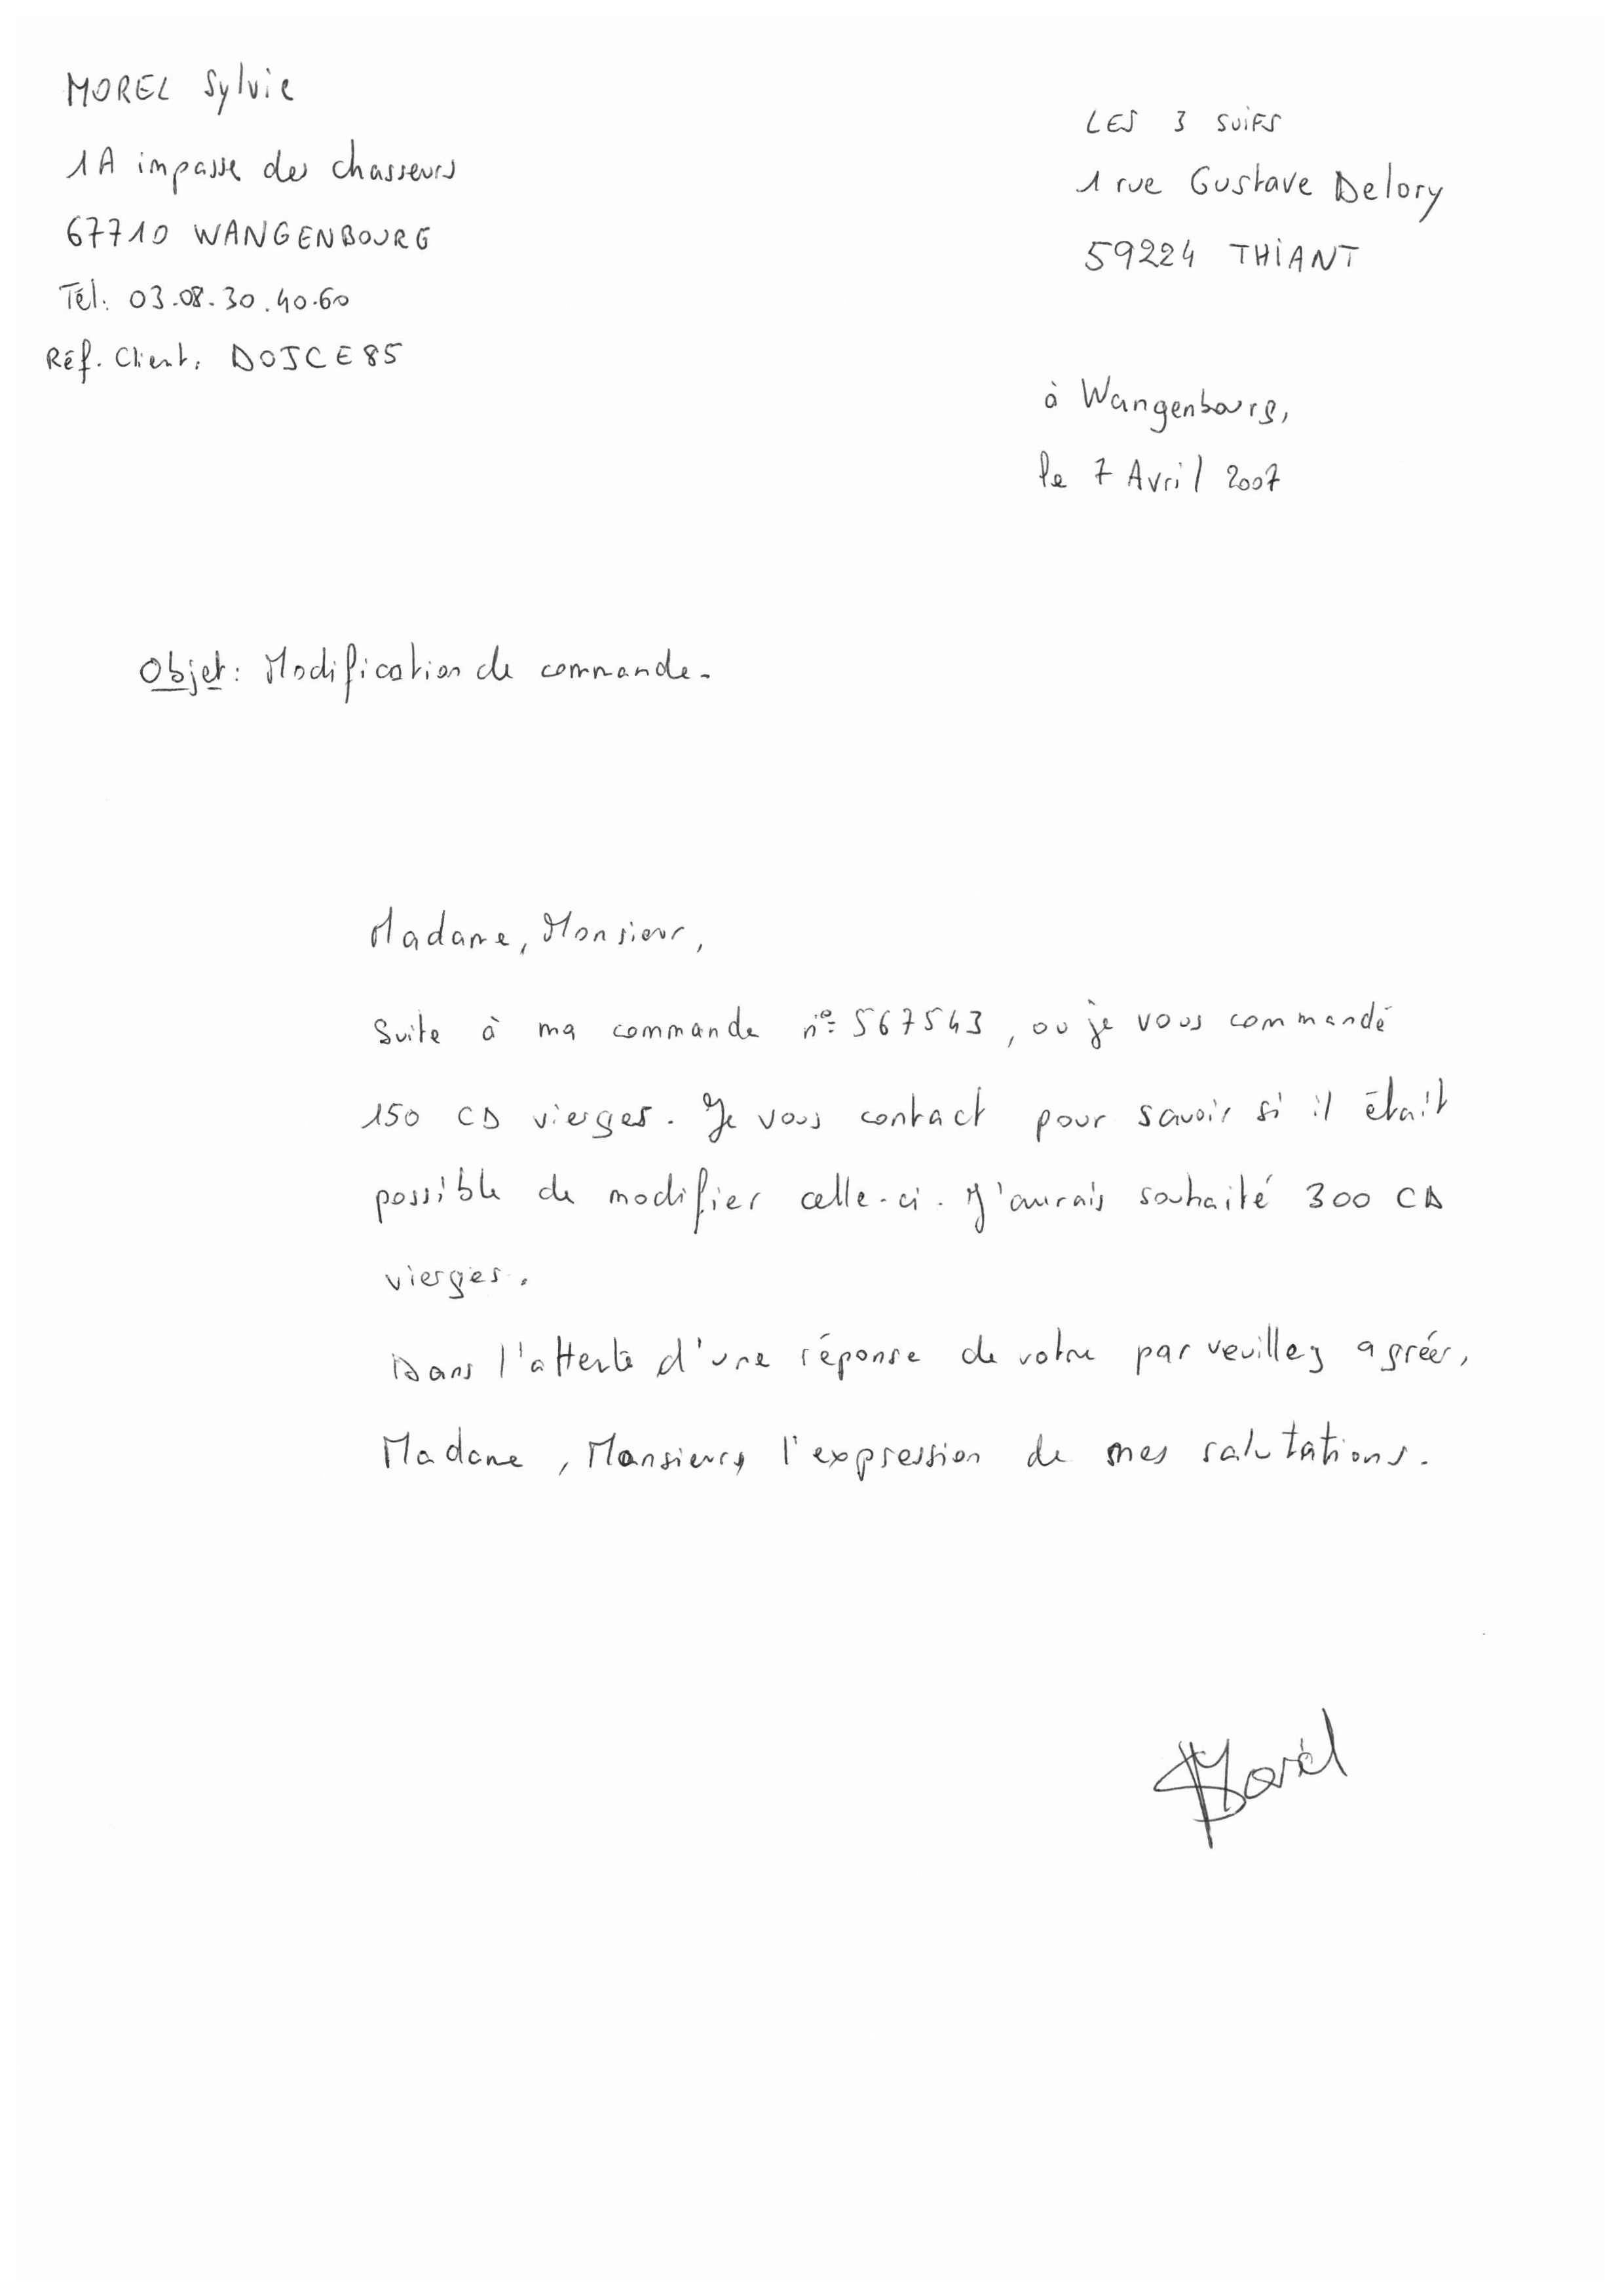 MOREL Sylvie
1A impasse des chasseurs
67710 WANGENBOURG
Tél. 03.08.30.40.60
Réf. Client. DOJCE85
LES 3 SUIFS
1 rue Gustave Delory
59224 THIANT
à Wangenbourg,
le 7 Avril 2007
Objet: Modification de commande.
Madame, Monsieur,
Suite à ma commande n° 567543, ou je vous commandé
150 CD vierges. Je vous contact pour savoir si il était
possible de modifier celle-ci. J'aurais souhaité 300 CD
vierges.
Dans l'attente d'une réponse de votre par veuillez agréer,
Madame, Monsieur, l'expression de mes salutations.
SMorel